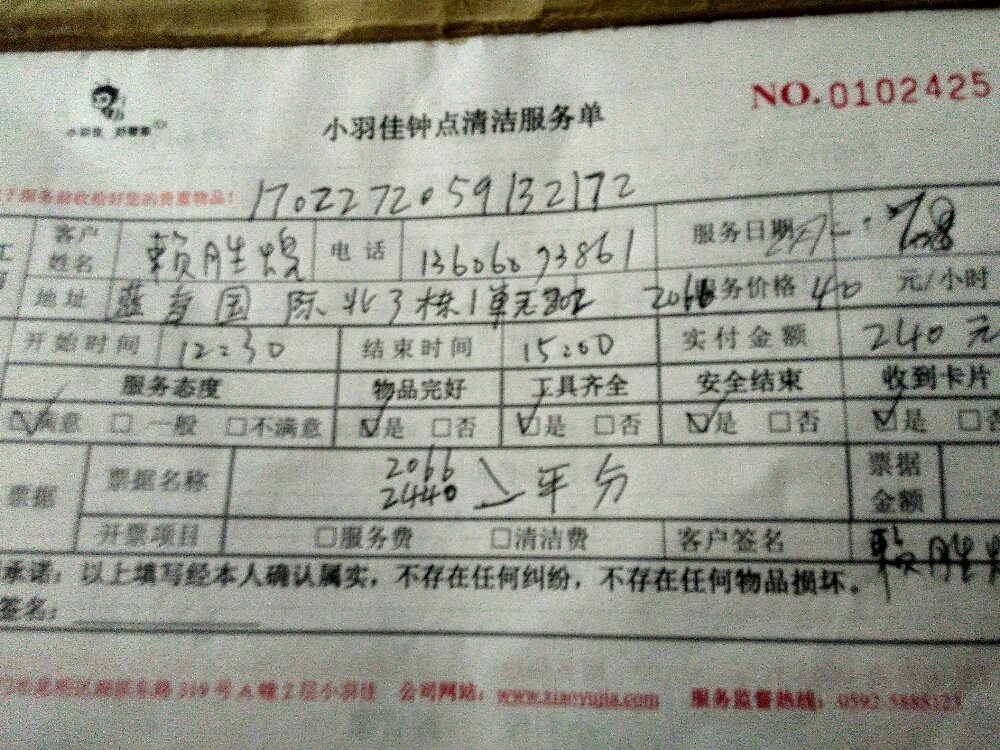 NO.0102425
小羽佳
小羽佳钟点清洁服务单
服务前收拾好您的贵重物品！
1702272059132172
客户姓名 赖胜 电话 13606093861 服务日期
地址 蓝 国 际 北3栋1单元802 2066 服务价格 40 元/小时
开始时间 12:30 结束时间 15:00 实付金额 240 元
服务态度 物品完好 工具齐全 安全结束 收到卡片
☑满意 □ 一般 □不满意 ☑是 □否 ☑是 □否 ☑是 □否 ☑是 □否
票据 票据名称 2066 2440 平分 票据金额
开票项目 □服务费 □清洁费 客户签名 赖胜
承诺：以上填写经本人确认属实，不存在任何纠纷，不存在任何物品损坏。
签名：
319号A幢2层小羽佳 公司网站：www.xiaoyujia.com 服务监督热线：0592-5888123